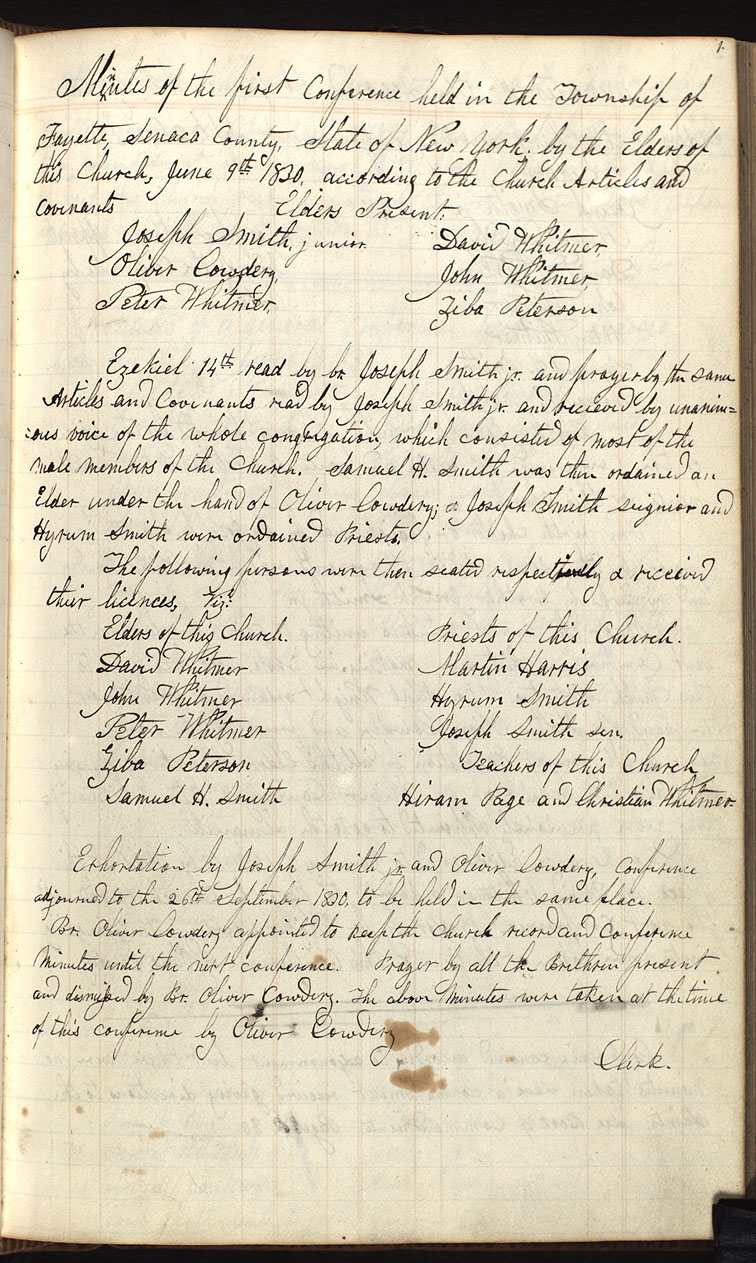 1.
Minutes of the first Conference held in the Township of
Fayette, Senaca County, State of New York, by the Elders of
this Church, June 9th 1830, according to the Church Articles and
Covenants Elders Present.
Joseph Smith, junior David Whitmer,
Oliver Cowdery, John Whitmer,
Peter Whitmer, Ziba Peterson
Ezekiel 14th read by br. Joseph Smith jr. and prayer by the same
Articles and Covenants read by Joseph Smith jr. and recieved by unanim=
=ous voice of the whole congregation, which consisted of most of the
male members of the Church. Samuel H. Smith was then ordained an
Elder under the hand of Oliver Cowdery; & Joseph Smith seignior and
Hyrum Smith were ordained Priests.
The following persons were then seated respectively & received
their licences, Viz:
Elders of this Church. Priests of this Church.
David Whitmer Martin Harris
John Whitmer Hyrum Smith
Peter Whitmer Joseph Smith sen.
Ziba Peterson Teachers of this Church
Samuel H. Smith Hiram Page and Christian Whitmer.
Exhortation by Joseph Smith jr. and Oliver Cowdery, Conference
adjourned to the 26th September 1830, to be held in the same place.
Br. Oliver Cowdery appointed to keep the church record and Conference
minutes until the next conference. Prayer by all the Brethren present
and dismissed by Br. Oliver Cowdery. The above minutes were taken at the time
of this conference by Oliver Cowdery
Clerk.